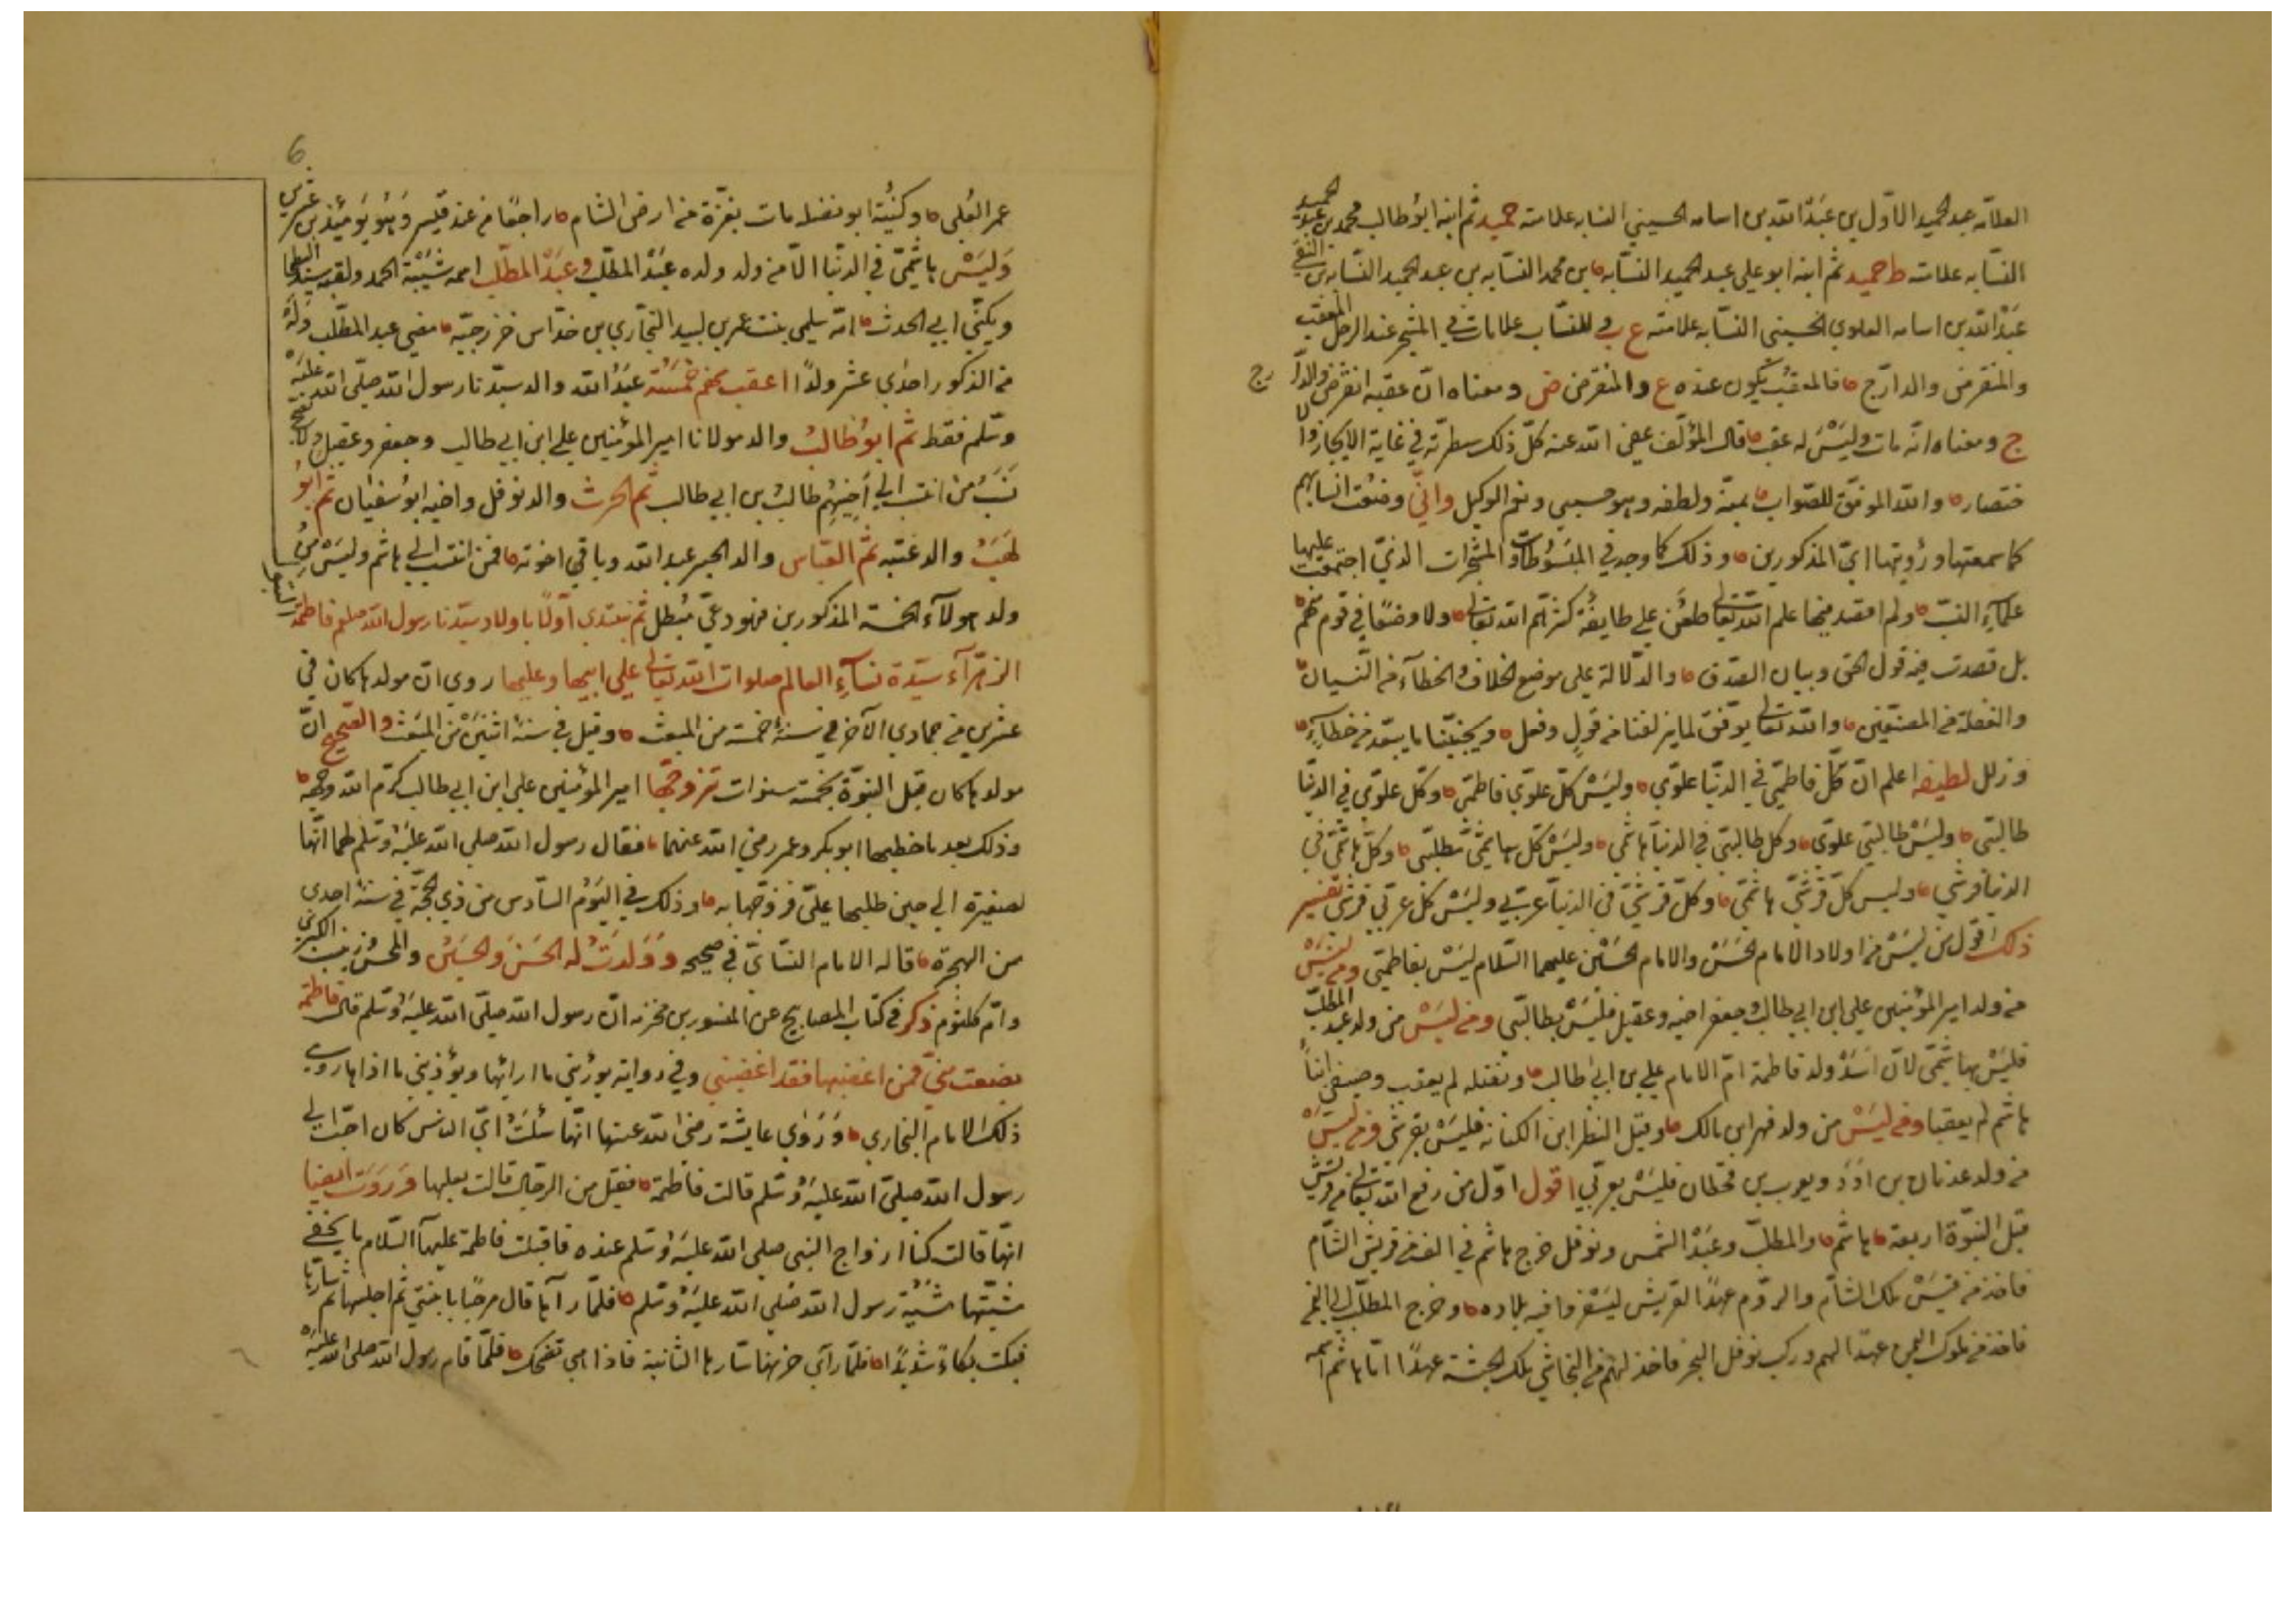 العلامه عبد الحميد الاول بن عبد الله بن اسامه الحسيني النسابه علامته حميد ثم ابنه ابو طالب محمد بن عبد الحميد
النسابه علامته ط حميد ثم ابنه ابو علي عبد الحميد النسابه بن محمد النسابه بن عبد الحميد النسابه بن التقي
عبد الله بن اسامه العلوي الحسيني النسابه علامته ع ب و للنساب علامات في المشجر عند الرجل المعقب
والمنقرض والدارج فالمعقب يكون عنده ع والمنقرض ض ومعناه ان عقبه انقرض والدا رج
ج ومعناه انه مات وليس له عقب قال المؤلف عفي الله عنه كل ذلك سطرته في غاية الايجاز والا
ختصار والله الموفق للصواب بمنه ولطفه وهو حسبي ونعم الوكيل واني وضعت انسابهم
كما سمعتها ورؤيتها اي المذكورين وذلك كما وجد في المبسوطات والمشجرات الذي اجتمعت عليها
علمآء النسب ولم اقصد فيها علم الله تعالى طعن علي طايفة كثرهم الله تعالى ولا وضعا في قوم منهم
بل قصدت فيه قول الحق وبيان الصدق والدلالة على موضع الخلاف والخطآء من النسيان
والغفلة من المصنفين والله تعالى يوفق لما يزلفنا من قول وفعل ويجنبنا ما يبعد من خطآء
وزلل لطيفه اعلم ان كل فاطمي في الدنيا علوي وليس كل علوي فاطمي وكل علوي في الدنيا
طالبي وليس طالبي علوي وكل طالبي في الدنيا هاشمي وليس كل هاشمي مطلبي وكل هاشمي في
الدنيا قرشي وليس كل قرشي هاشمي وكل قرشي في الدنيا عربي وليس كل عربي قرشي تفسير
ذلك اقول من ليس من اولاد الامام الحسن والامام الحسين عليهما السلام ليس بفاطمي ومن ليس
من ولد امير المؤمنين علي ابن ابي طالب وجعفر اخيه وعقيل فليس بطالبي ومن ليس من ولد عبد المطلب
فليس بهاشمي لان اسد ولد فاطمة ام الامام علي بن ابي طالب ونفنله لم يعقب وصيفي ابنا
هاشم لم يعقبا ومن ليس من ولد فهر ابن مالك وقيل النظر ابن الكنانه فليس بقرشي ومن ليس
من ولد عدنان بن ادد ويعرب بن قحطان فليس بعربي اقول اول من رفع الله تعالى من قريش
قبل النبوة اربعة هاشم والمطلب وعبد الشمس ونوفل خرج هاشم في الف من قريش الشام
فاخذ من قيس ملك الشام والروم عهدا لقريش ليسفروا فيه بلاده وخرج المطلب الى اليمن
فاخذ من ملوك اليمن عهدا لهم وركب نوفل البحر فاخذ لهم من النجاشي ملك الحبشة عهدا اما هاشم اسمه
6
عمر العلي وكنيته ابو نضلة مات بغزة من ارض الشام راجعا من عند قيصر وهو يومئذ بن عشرين
وليس هاشمي في الدنيا الا من ولد ولده عبد المطلب و عبد المطلب اسمه شيبة الحمد ولقبه سيد البطحا
ويكنى ابي الحدث امه سلمى بنت عمر بن لبيد النجاري بن خداس خزرجيه مضى عبد المطلب وله
من الذكور احدي عشر ولدا اعقب منهم خمسة عبد الله والد سيدنا رسول الله صلى الله عليه
وسلم فقط ثم ابو طالب والد مولانا امير المؤمنين علي ابن ابي طالب وجعفر وعقيل ولا يصح
نسب من انتسب الى اخيهم طالب بن ابي طالب ثم الحرث والد نوفل واخيه ابو سفيان ثم ابو
لهب والد عتبه ثم العباس والد الحبر عبد الله وباقي اخوته فمن انتسب الي هاشم وليس من
ولد هولآء الخمسة المذكورين فهو دعي مبطل ثم نبتدي اولا باولاد سيدنا رسول الله صلعم فاطمة البتول
الزهرآء سيدة نسآء العالم صلوات الله تعالى علي ابيها وعليها روي ان مولدها كان في
عشرين من جمادي الآخر في سنة خمسة من المبعث وقيل في سنة اثنين من المبعث والصحيح ان
مولدها كان قبل النبوة بخمسة سنوات تزوجها امير المؤمنين علي ابن ابي طالب كرم الله وجهه
وذلك بعد ما خطبها ابو بكر وعمر رضي الله عنهما فقال رسول الله صلي الله عليه وسلم لهما انها
لصغيرة الي حين طلبها علي فزوجها به وذلك في اليوم السادس من ذي الحجة في سنة احدى
من الهجرة قاله الامام النسائي في صحيحه و ولدت له الحسن والحسين والمحسن وزينب الكبرى
وام كلثوم ذكر في كتاب المصابيح عن المسور بن مخرمه ان رسول الله صلى الله عليه وسلم قال فاطمة
بضعت مني فمن اغضبها فقد اغضبني وفي رواية يورثني ما ارائها ويؤذيني ما اذاها روى
ذلك الامام البخاري وروي عايشة رضي الله عنها انها سئلت اي الناس كان احب الى
رسول الله صلى الله عليه وسلم قالت فاطمة فقيل من الرجال قالت بعلها وروت ايضا
انها قالت كنا ازواج النبي صلي الله عليه وسلم عنده فاقبلت فاطمة عليها السلام ما يخفي
مشيتها مشية رسول الله صلي الله عليه وسلم فلما رآها قال مرحبا بابنتي ثم اجلسها ثم سارها
فبكت بكاء شديدا فلما راي حزنها سارها الثانية فاذا هي تضحك فلما قام رسول الله صلى الله عليه